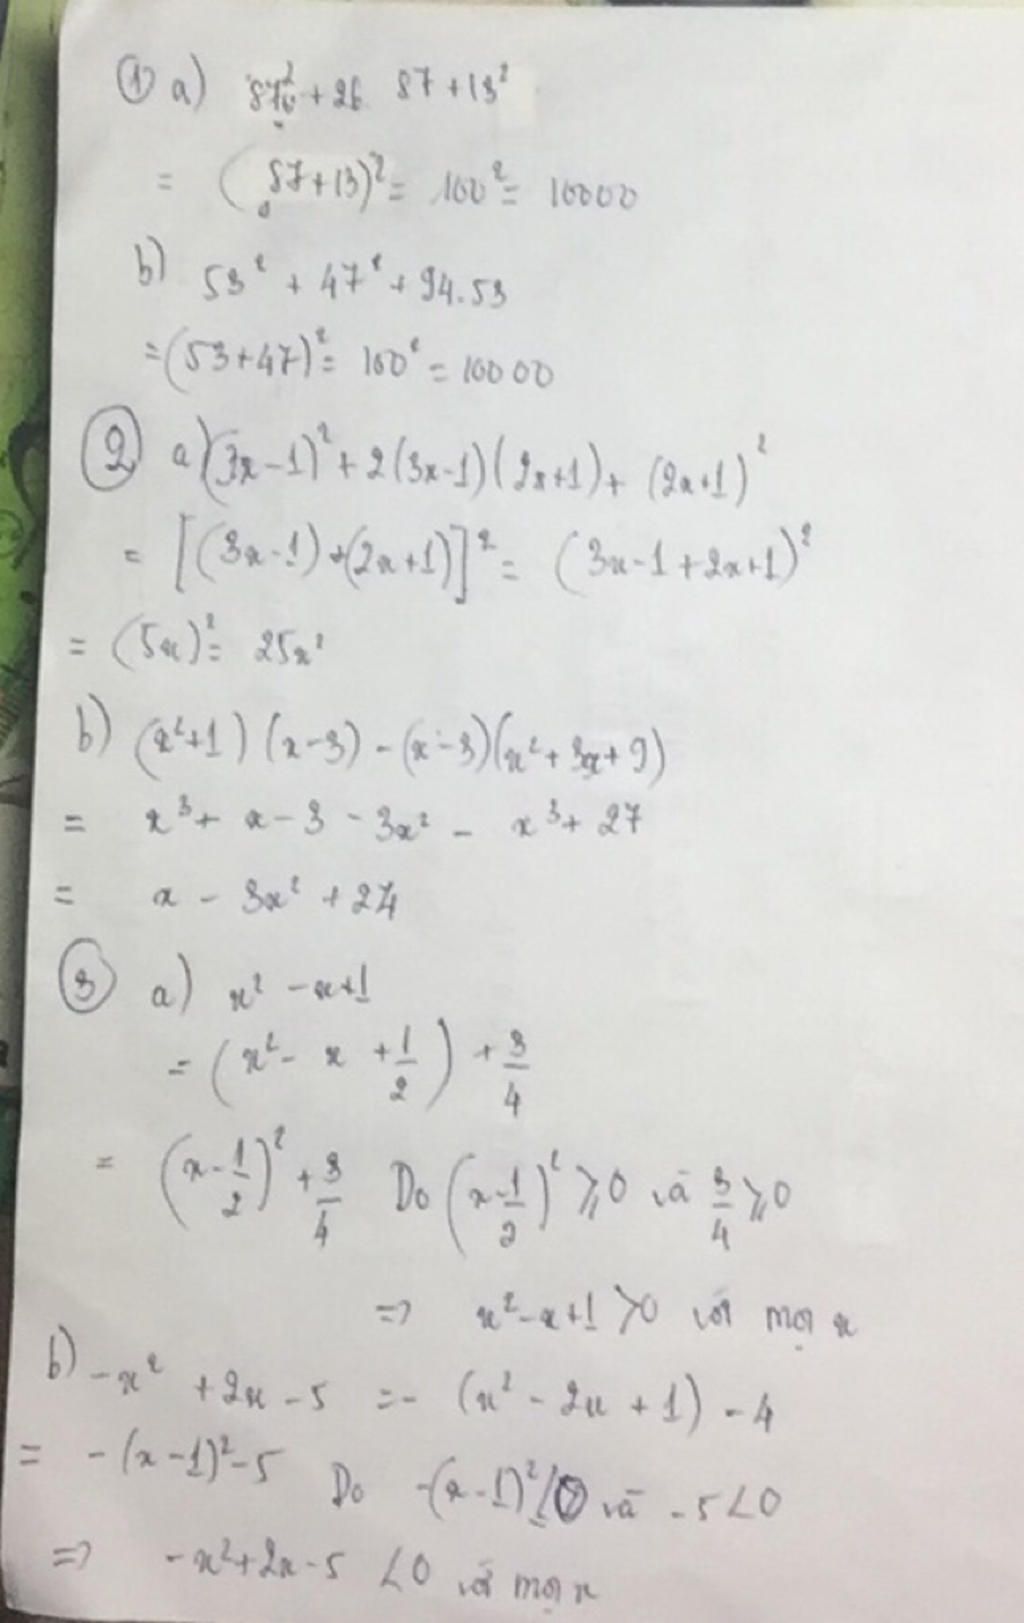 ① a) 87² + 26 87 + 13²
= (87+13)² = 100² = 10000
b) 53² + 47² + 94.53
= (53+47)² = 100² = 10000
② a) (3x-1)² + 2(3x-1)(2x+1) + (2x+1)²
= [(3x-1)+(2x+1)]² = (3x-1+2x+1)²
= (5x)² = 25x²
b) (x²+1)(x-3) - (x-3)(x²+3x+9)
= x³ + x - 3 - 3x² - x³ + 27
= x - 3x² + 24
③ a) x² - x + 1
= (x² - x + 1/2) + 3/4
= (x - 1/2)² + 3/4 Do (x - 1/2)² ⩾ 0 và 3/4 ⩾ 0
=> x² - x + 1 > 0 với mọi x
b) -x² + 2x - 5 = - (x² - 2x + 1) - 4
= -(x-1)² - 5 Do -(x-1)² ≤ 0 và -5 < 0
=> -x² + 2x - 5 < 0 với mọi x